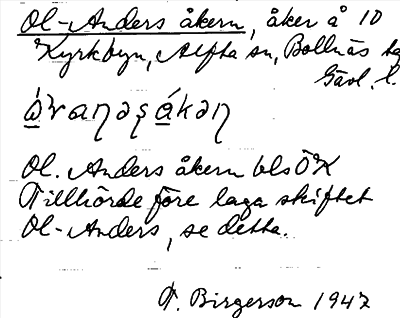 Ol-Anders åkern, åker å 10
Kyrkbyn, Alfta sn, Bollnäs
Gävl. l.
Ol. Anders åkern bls ÖK
Tillhörde före laga skiftet
Ol-Anders, se detta.
T. Birgerson 1947